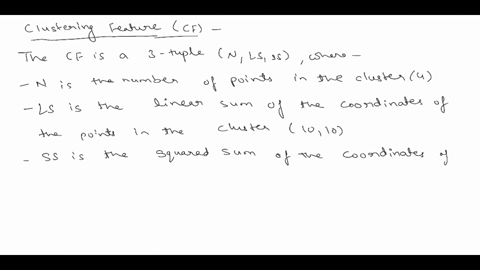 Clustering Feature (CF) -
The CF is a 3-tuple (N, LS, SS), where -
- N is the number of points in the cluster (4)
- LS is the linear sum of the coordinates of
the points in the cluster (10,10)
- SS is the squared sum of the coordinates of